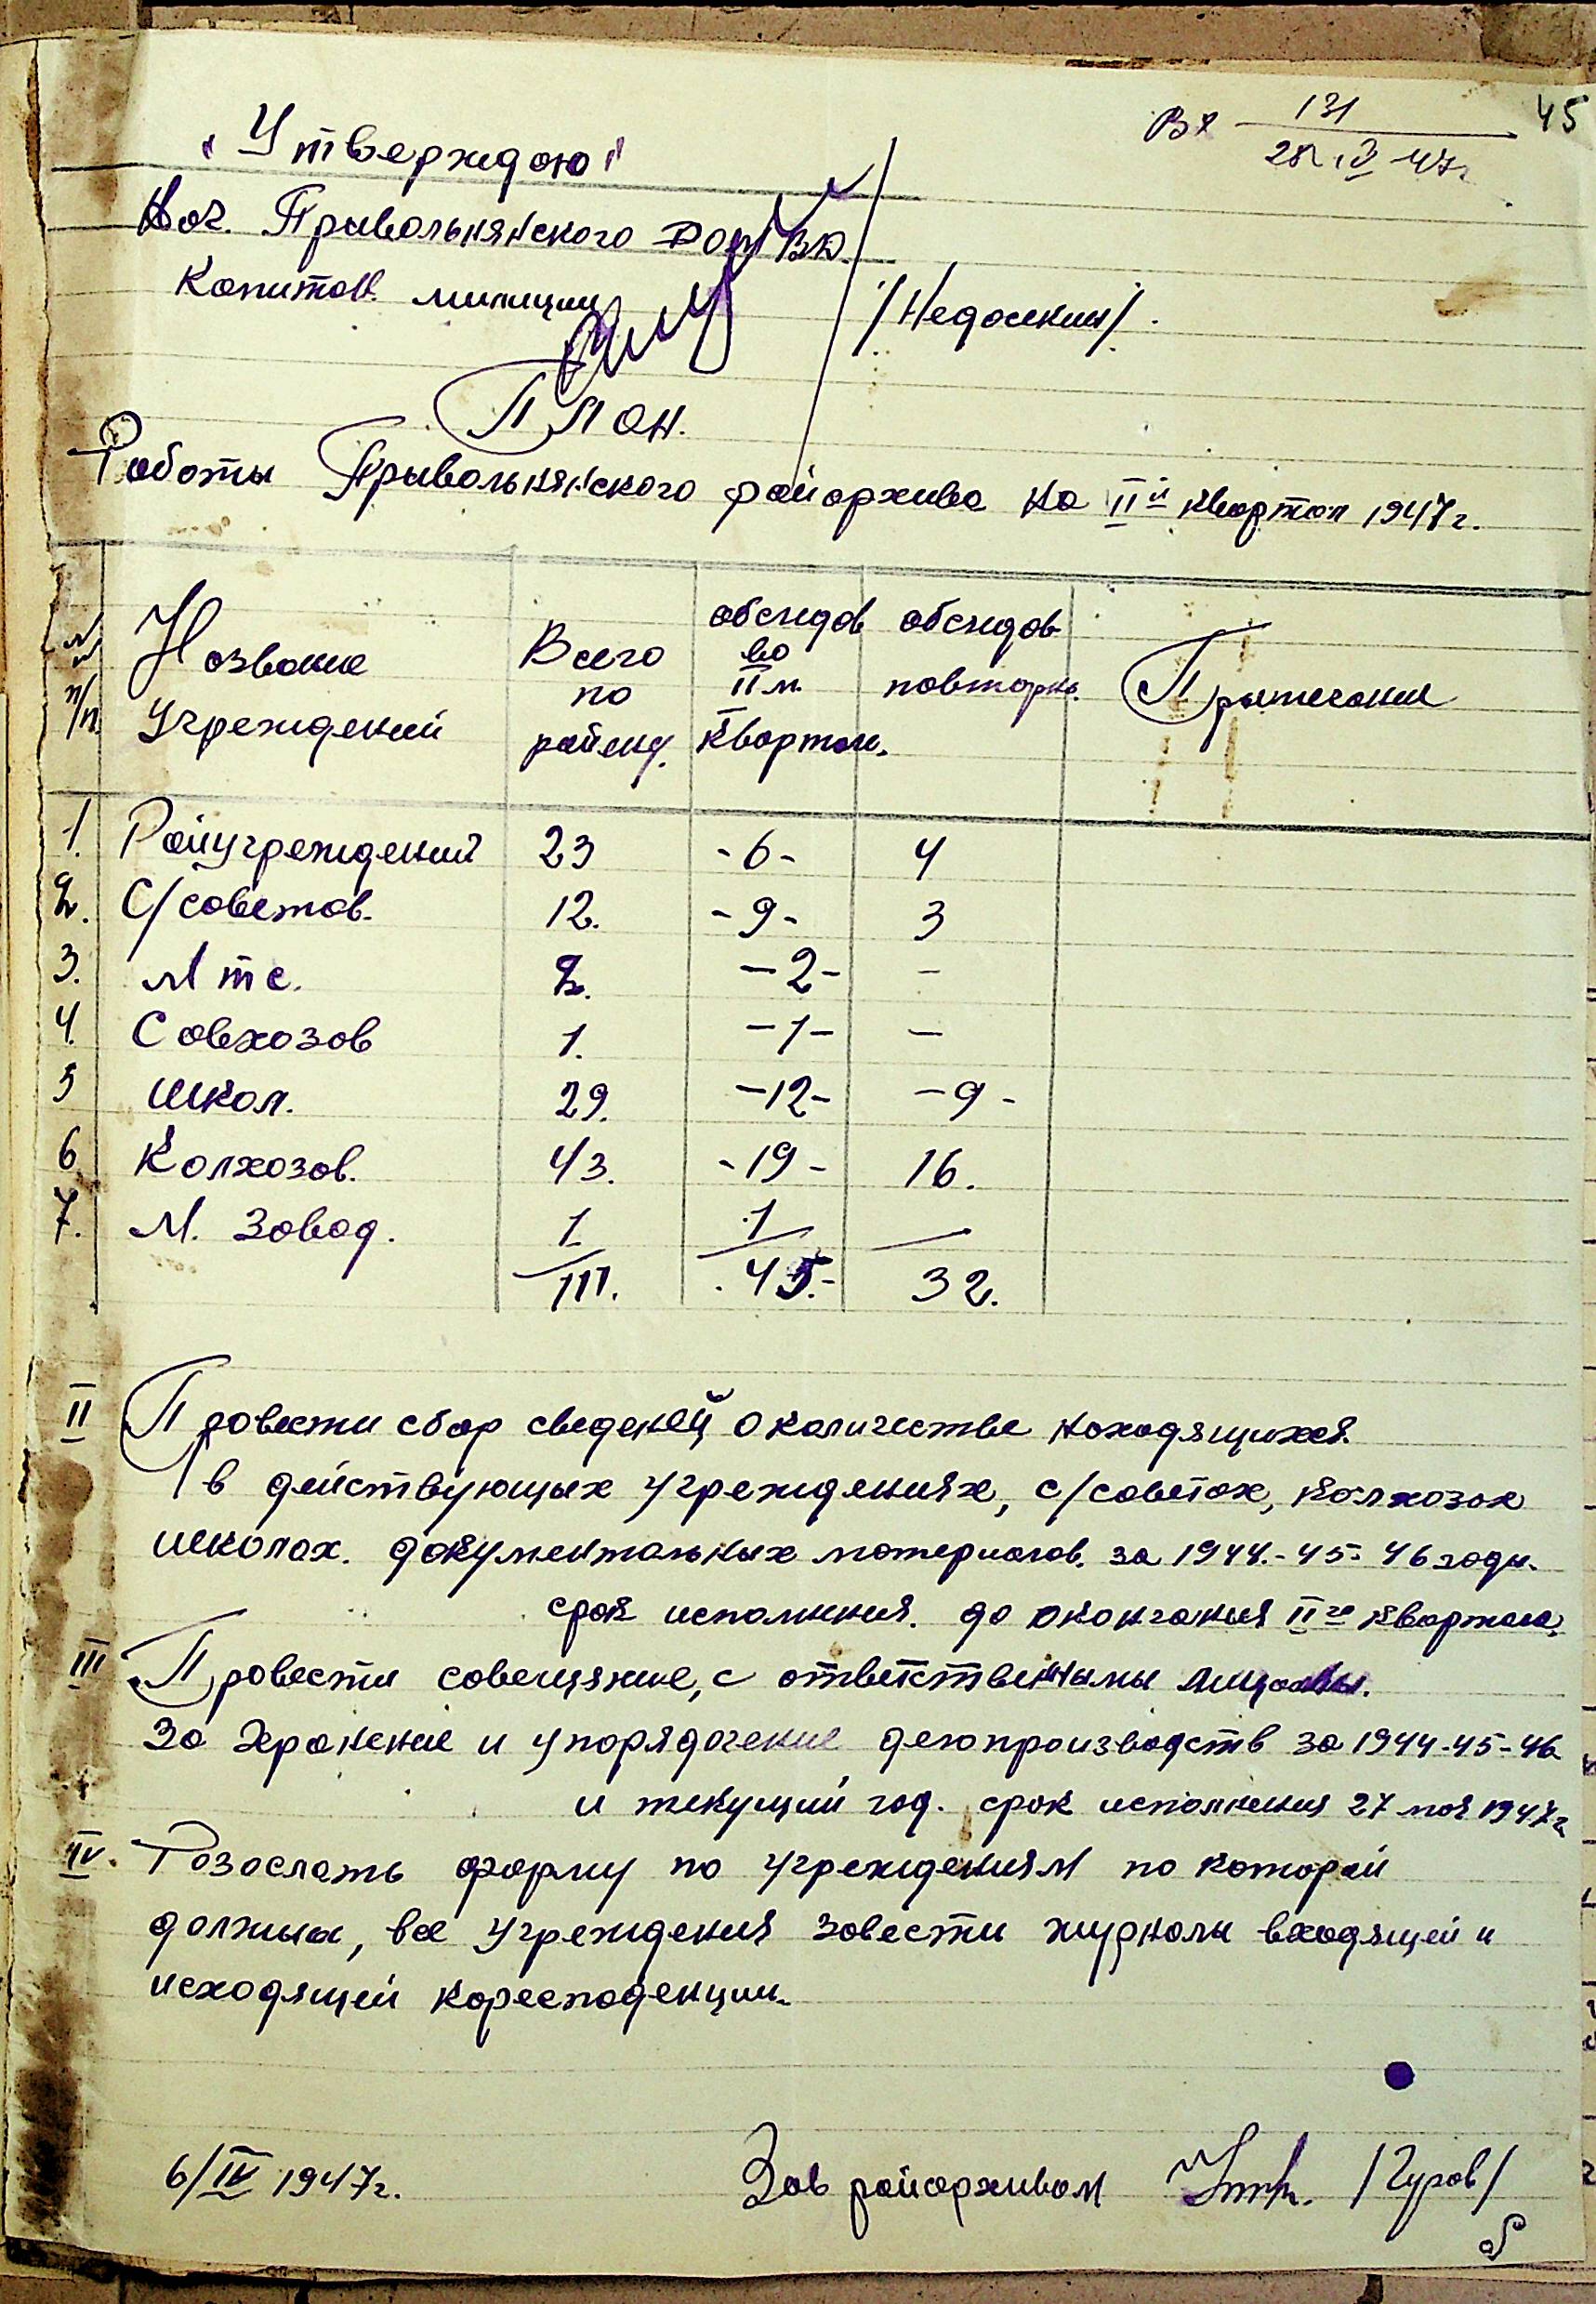 Вх 131 45
28/IV-47г
"Утверждаю"
Нач. Привольнянского РО МВД.
Капитан милиции /Недосекин/.
План.
Работы Привольнянского райархива на IIй квартал 1947г.
№№ п/п Название Учреждений Всего по району. обследов во IIм. квартал. обследов повторно. Примечание
1. Райучреждений 23 -6- 4
2. С/советов. 12. -9- 3
3. Мтс. 2. -2- -
4. Совхозов 1. -1- -
5 Школ. 29. -12- -9-
6 Колхозов. 43. -19- 16.
7. М. Завод. 1 1 —
111. 45.- 32.
II Провести сбор сведений о количестве находящихся.
в действующих учреждениях, с/советах, колхозах
школах. документальных материалов. за 1944.-45-46 годы.
срок исполнения. до окончания IIго квартала.
III Провести совещяние, с ответственными лицами.
За хранение и упорядочение делопроизводств за 1944-45-46
и текущий год. срок исполнения 27 мая 1947г
IV. Разослать форму по учреждениям по которой
должны, все учреждения завести журналы входящей и
исходящей коресподенции.
6/IV 1947г. Зав райархивом /Гуров/